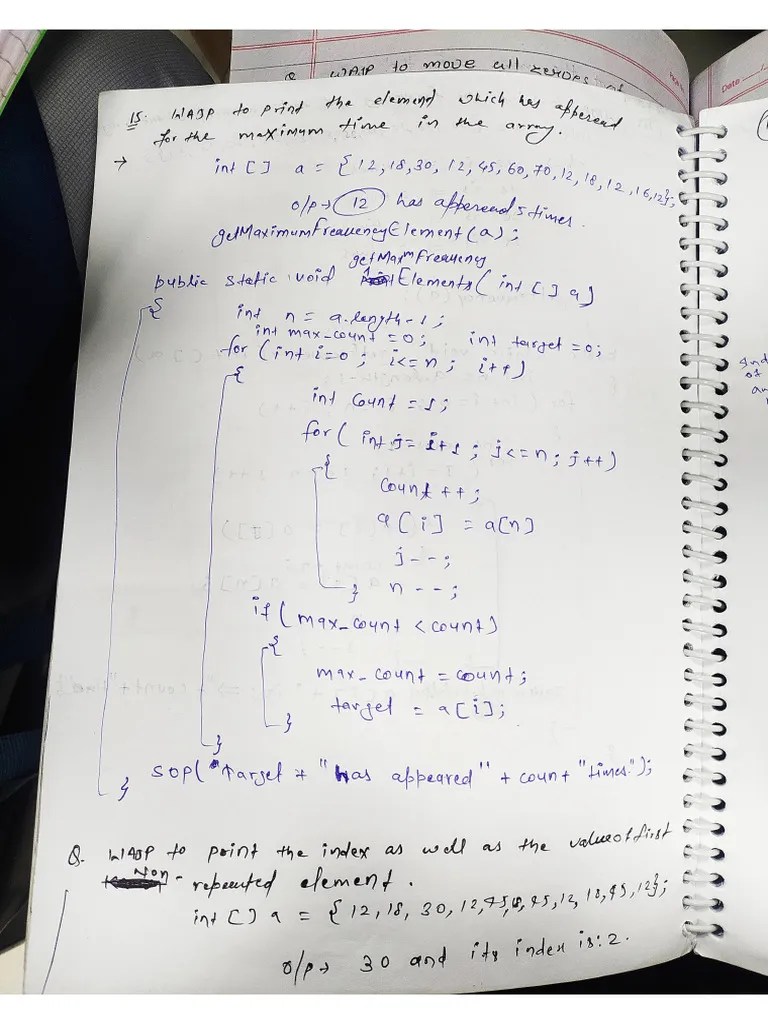 Q WAJP to move all zeroes of
Date
15. WAJP to print the element which has apperead
for the maximum time in the array.
→ int [] a = {12,18,30, 12,45,60,70,12,18,12,16,12};
o/p → 12 has apperead 5 times.
getMaximumFrequencyElement(a);
getMaxm Frequency
public static void Elements( int [] a)
{
int n = a.length-1;
int max_count =0; int target =0;
for (int i=0 ; i<=n ; i++)
{
int count =1;
for( int j= i+1 ; j<=n; j++)
{
count ++;
a[i] = a[n]
j--;
} n--;
if( max_count < count)
{
max_count = count;
target = a[i];
}
}
SOP( "Target + "has appeared" + count "times");
}
Q. WAJP to print the index as well as the value of first
Non - repeated element.
int [] a = {12,18, 30, 12,45,18,45,12, 18,45,12};
o/p → 30 and its index is:2.